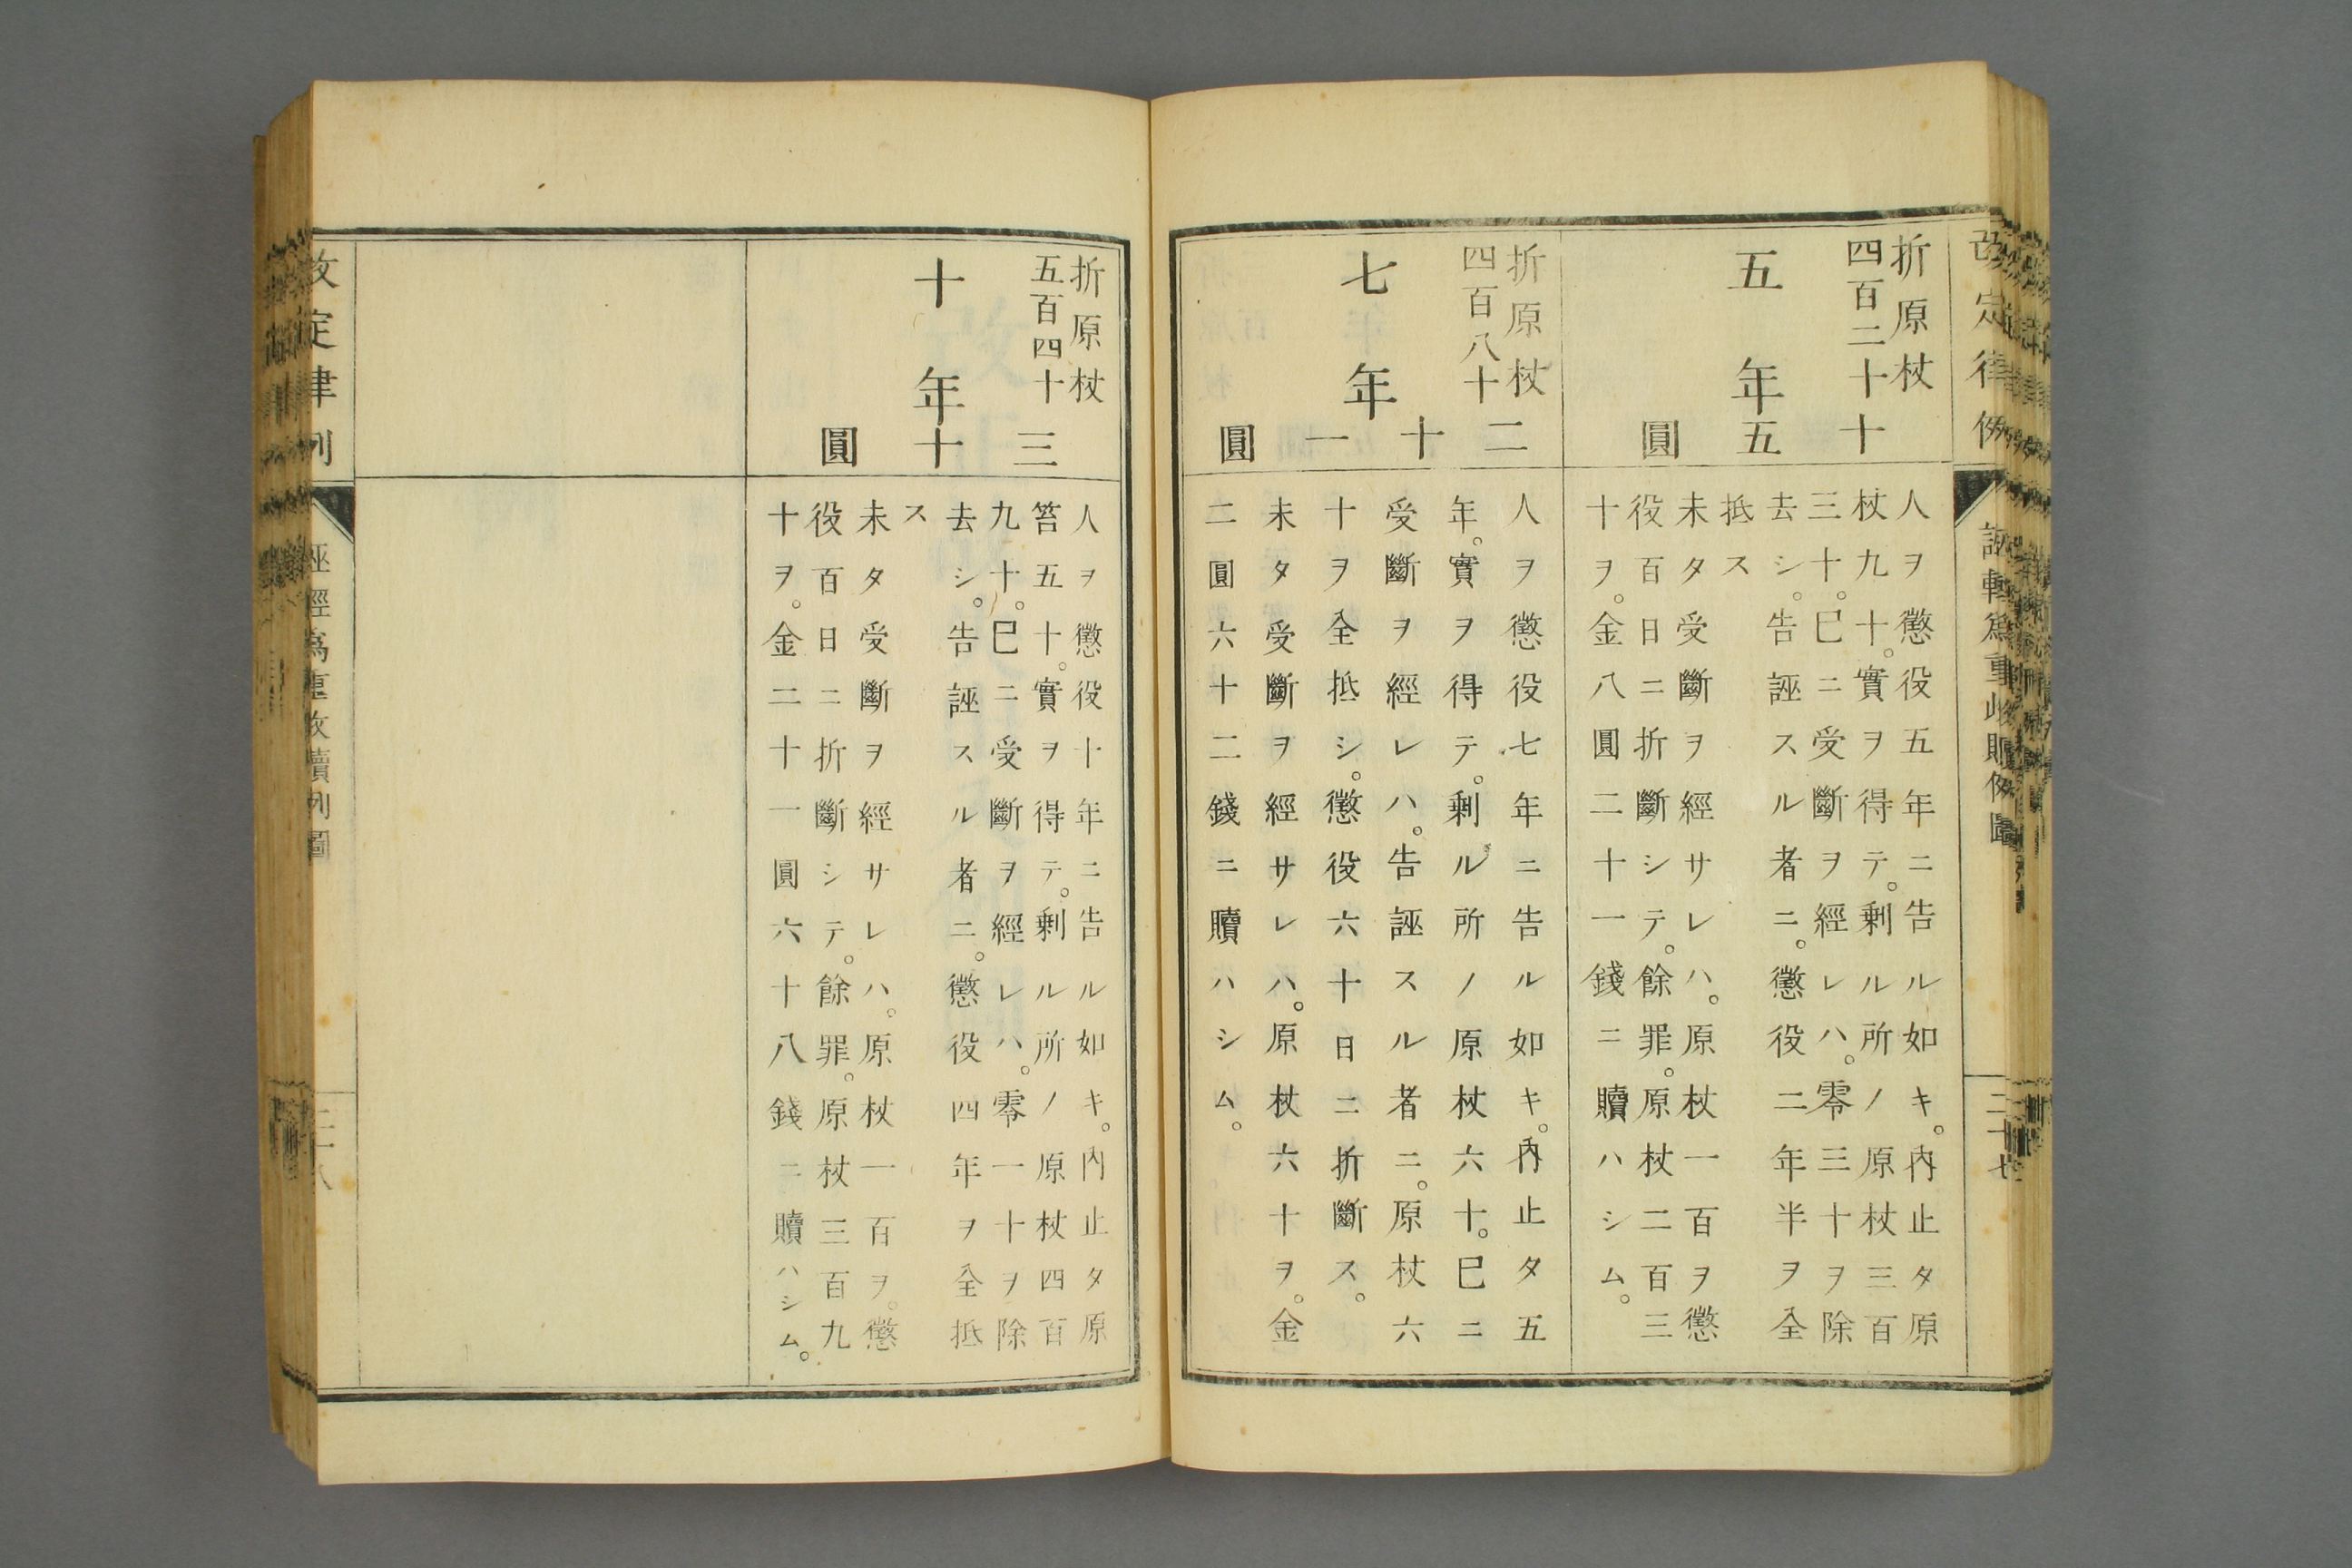 改定律例
誣輕爲重收贖例圖
二十七
折原杖
四百二十
五年
十五圓
人ヲ懲役五年ニ告ル如キ。內止タ原
杖九十。實ヲ得テ。剩ル所ノ原杖三百
三十。巳ニ受斷ヲ經レハ。零三十ヲ除
去シ。告誣スル者ニ。懲役二年半ヲ全
抵ス
未タ受斷ヲ經サレハ。原杖一百ヲ懲
役百日ニ折斷シテ。餘罪。原杖二百三
十ヲ。金八圓二十一錢ニ贖ハシム。
折原杖
四百八十
七年
二十一圓
人ヲ懲役七年ニ告ル如キ。內止タ五
年。實ヲ得テ。剩ル所ノ原杖六十。巳ニ
受斷ヲ經レハ。告誣スル者ニ。原杖六
十ヲ全抵シ。懲役六十日ニ折斷ス。
未タ受斷ヲ經サレハ。原杖六十ヲ。金
二圓六十二錢ニ贖ハシム。
折原杖
五百四十
十年
三十圓
人ヲ懲役十年ニ告ル如キ。內止タ原
笞五十。實ヲ得テ。剩ル所ノ原杖四百
九十。巳ニ受斷ヲ經レハ。零一十ヲ除
去シ。告誣スル者ニ。懲役四年ヲ全抵
ス
未タ受斷ヲ經サレハ。原杖一百ヲ。懲
役百日ニ折斷シテ。餘罪。原杖三百九
十ヲ。金二十一圓六十八錢ニ贖ハシム。
改定律例
誣輕爲重收贖例圖
二十八